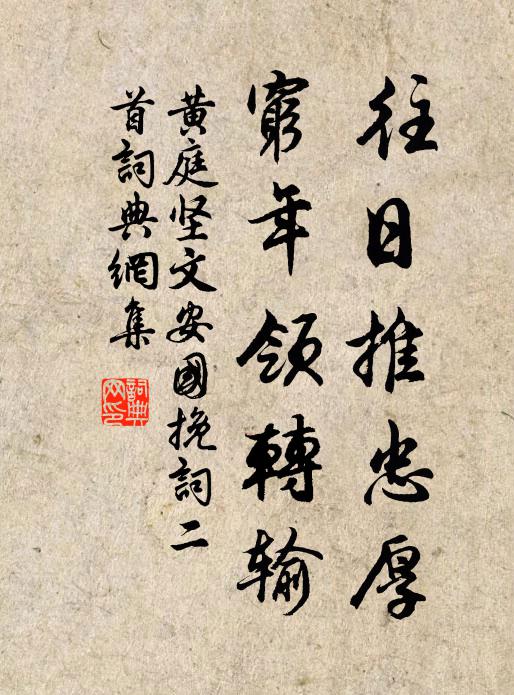 往日推忠厚
窮年領轉输
黄庭坚文安國挽詞二
首詞典網集
詞典
网印